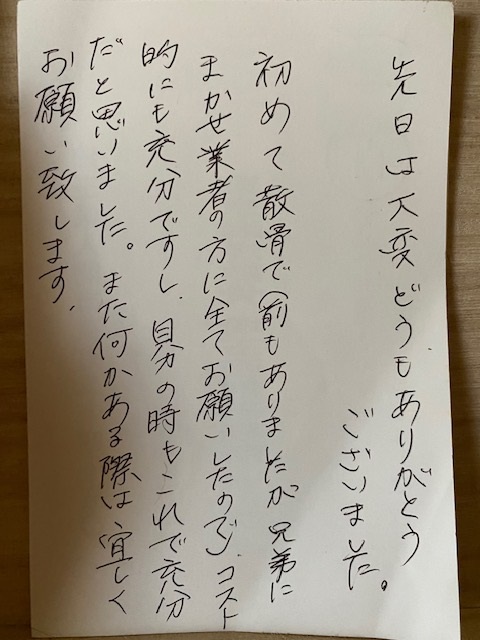 先日は大変どうもありがとう
ございました。
初めて散骨で(前もありましたが兄弟に
まかせ業者の方に全てお願いしたので)、コスト
的にも充分ですし、自分の時もこれで充分
だと思いました。また何かある際は宜しく
お願い致します。